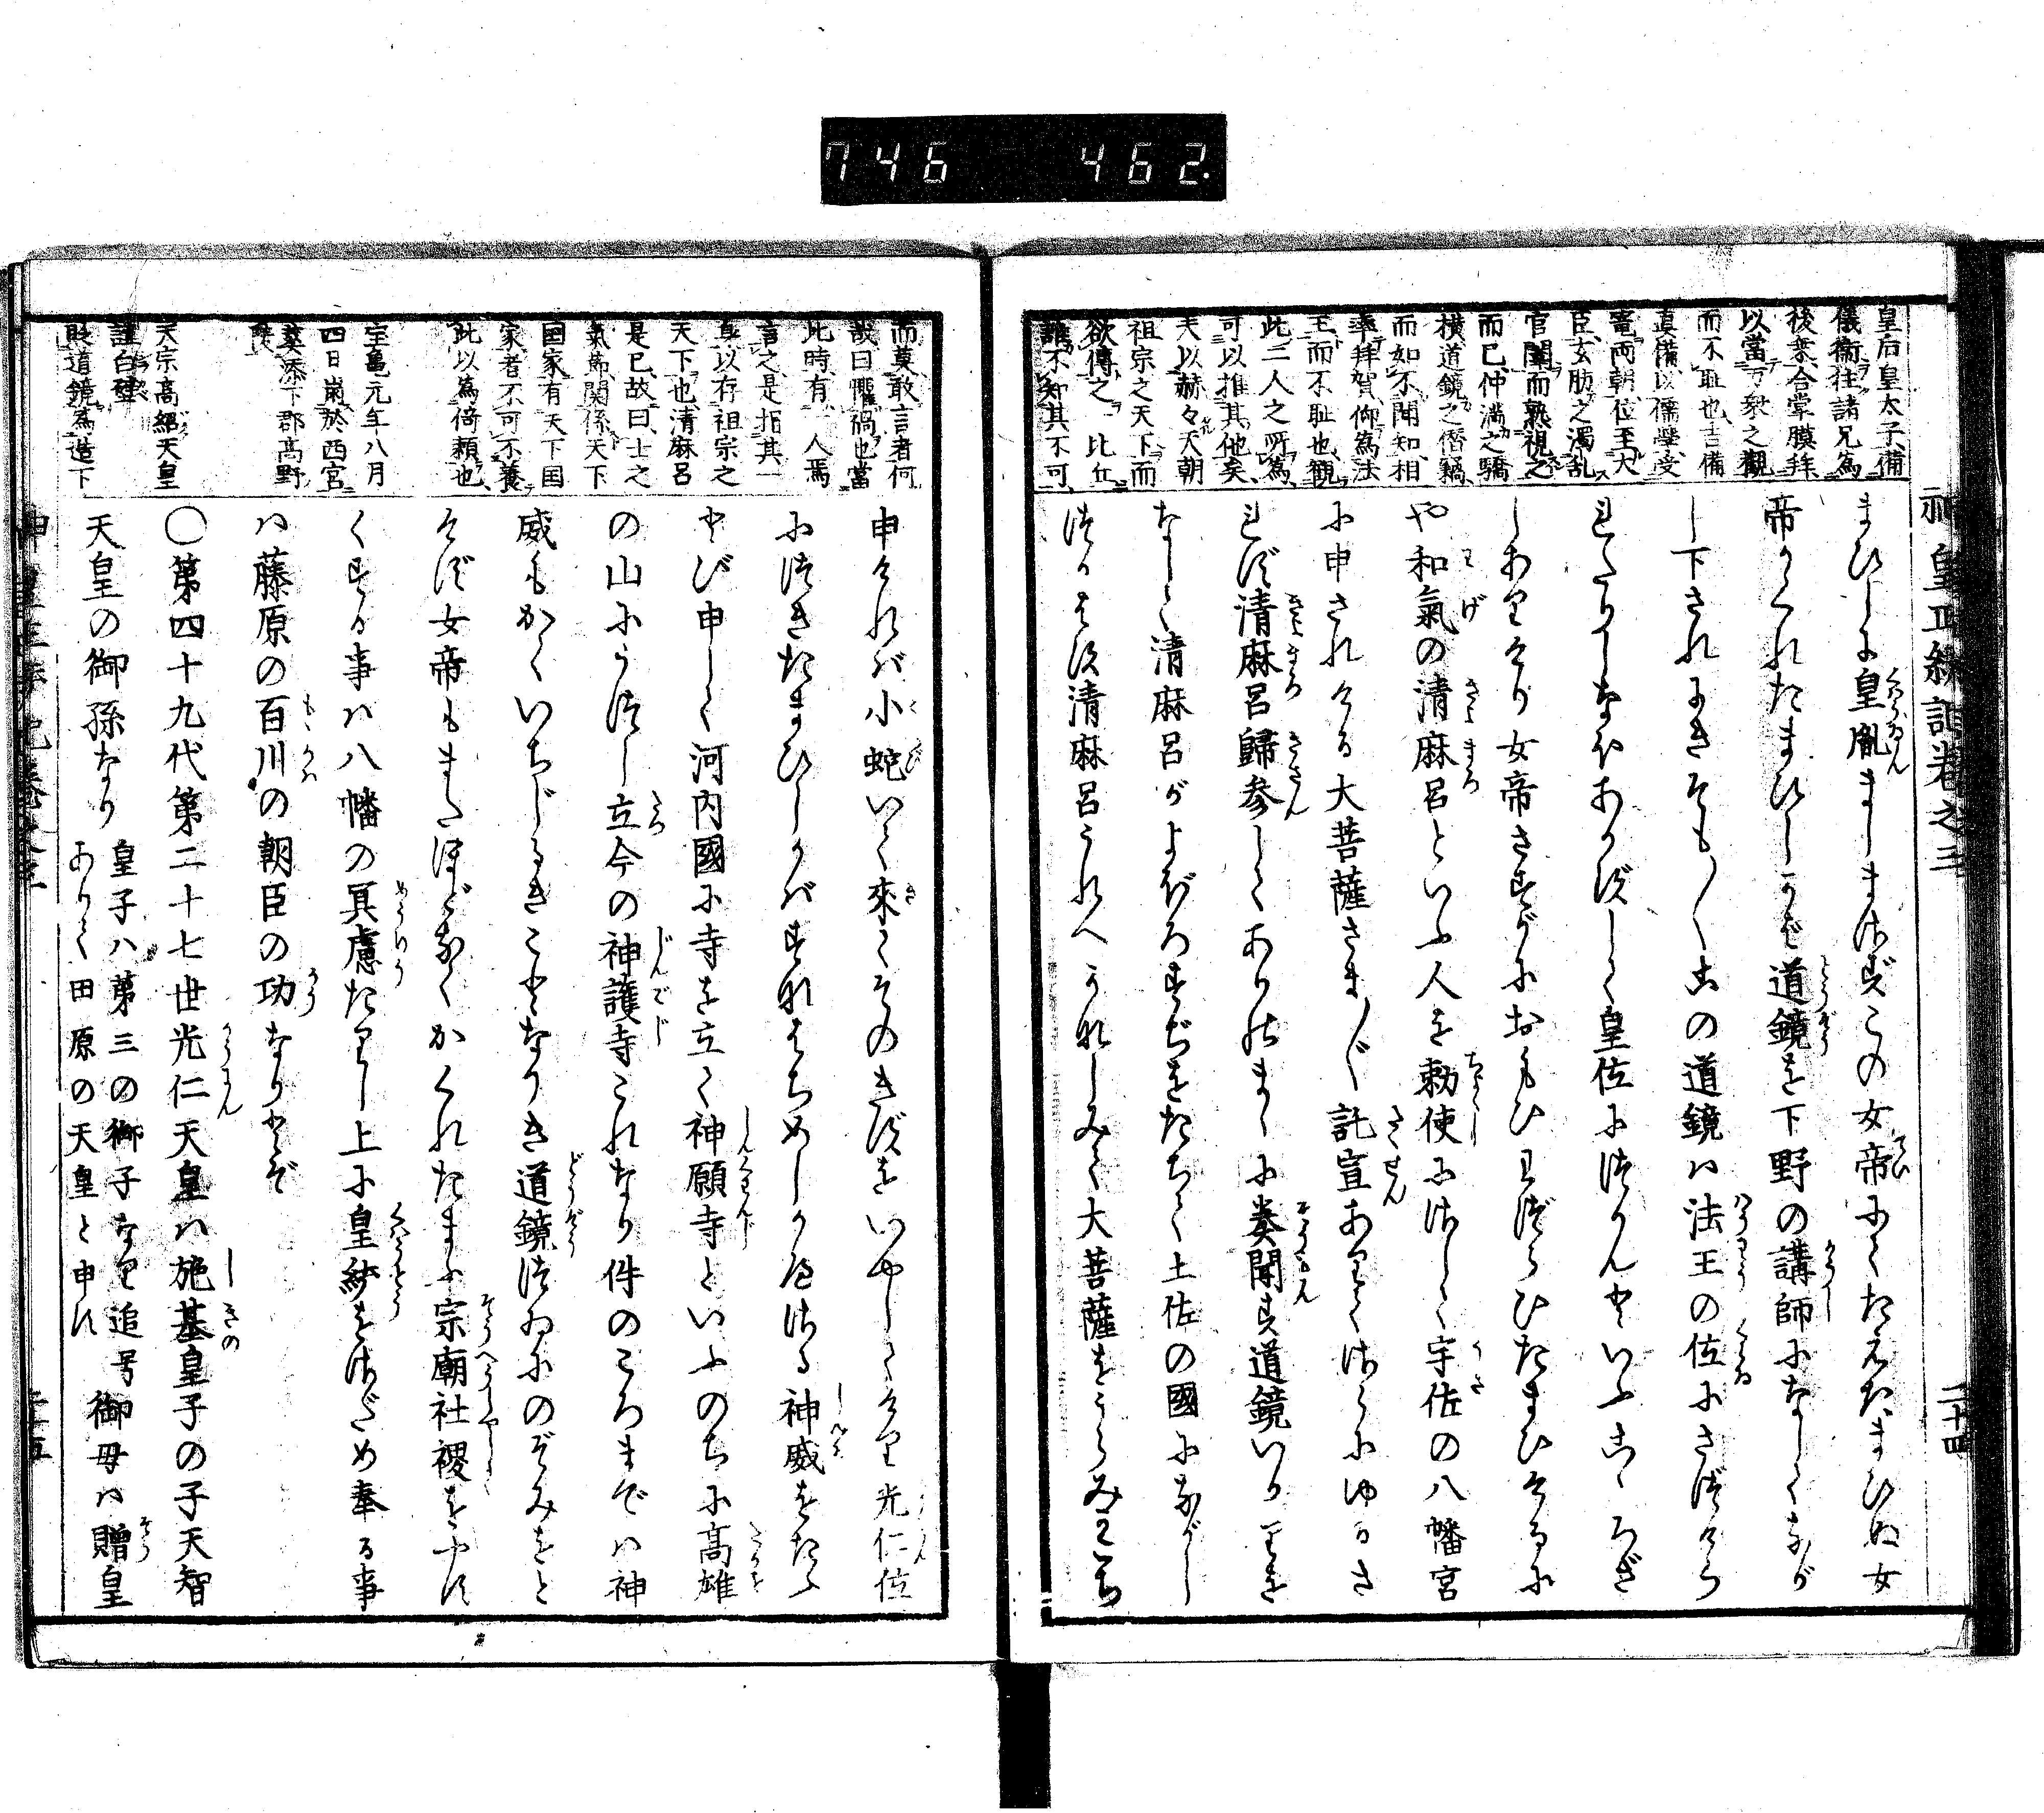 746 462.
神皇正統記巻之三
二十四
皇后皇太子備
儀衛往諸兄為
後衆合掌膜拜
以當万衆之觀
而不耻也吉備
真備以儒學受
寵兩朝位至大
臣玄肪之濁乱
宮闈而熟視之
而已仲満之驕
横道鏡之僭竊
而如不聞知相
率拜賀仰為法
王而不耻也觀
此二人之所為
可以推其他矣
夫以赫々天朝
祖宗之天下而
欲傳之比丘
誰不知其不可
まひしに皇胤ましまさずこの女帝にてたえたまひぬ女
帝かくれたまひしかば道鏡を下野の講師になしてなが
し下されにきそも〳〵此の道鏡は法王の位にさづけら
れたりしなほあかずして皇位につかんといふこゝろざ
しありけり女帝さすがにおもひわづらひたまひけるに
や和氣の清麻呂といふ人を勅使にさして宇佐の八幡宮
に申されける大菩薩さま〴〵託宣ありてさらにゆるさ
れず清麻呂歸參してありのまゝに奏聞す道鏡いかりを
なして清麻呂がよぼろすぢをたちて土佐の國にながし
つかはす清麻呂うれへかなしみて大菩薩をうらみかこち
而莫敢言者何
哉曰懼禍也當
此時有一人焉
言之是拒其一
身以存祖宗之
天下也清麻呂
是已故曰士之
氣節関係天下
国家有天下国
家者不可不養
此以為倚頼也
宝亀元年八月
四日崩於西宮
葬添下郡高野
陵
天宗高紹天皇
諱白壁
貶道鏡為造下
申ければ小蛇いで來てそのきずをいやしてけり光仁位
につきたまひしかばすなはちめしかへさる神威をたふ
とび申して河内國に寺を立て神願寺といふのちに高雄
の山にうつし立今の神護寺これなり件のころまでは神
威もかくいちじるきことなりき道鏡つゐにのぞみをと
けず女帝もまたほどなくかくれたまふ宗廟社稷をやす
くする事は八幡の冥慮たりし上に皇統をさだめ奉る事
は藤原の百川の朝臣の功なりとぞ
〇第四十九代第二十七世光仁天皇は施基皇子の子天智
天皇の御孫なり
皇子ハ第三の御子なり追号
ありて田原の天皇と申れ
御母は贈皇